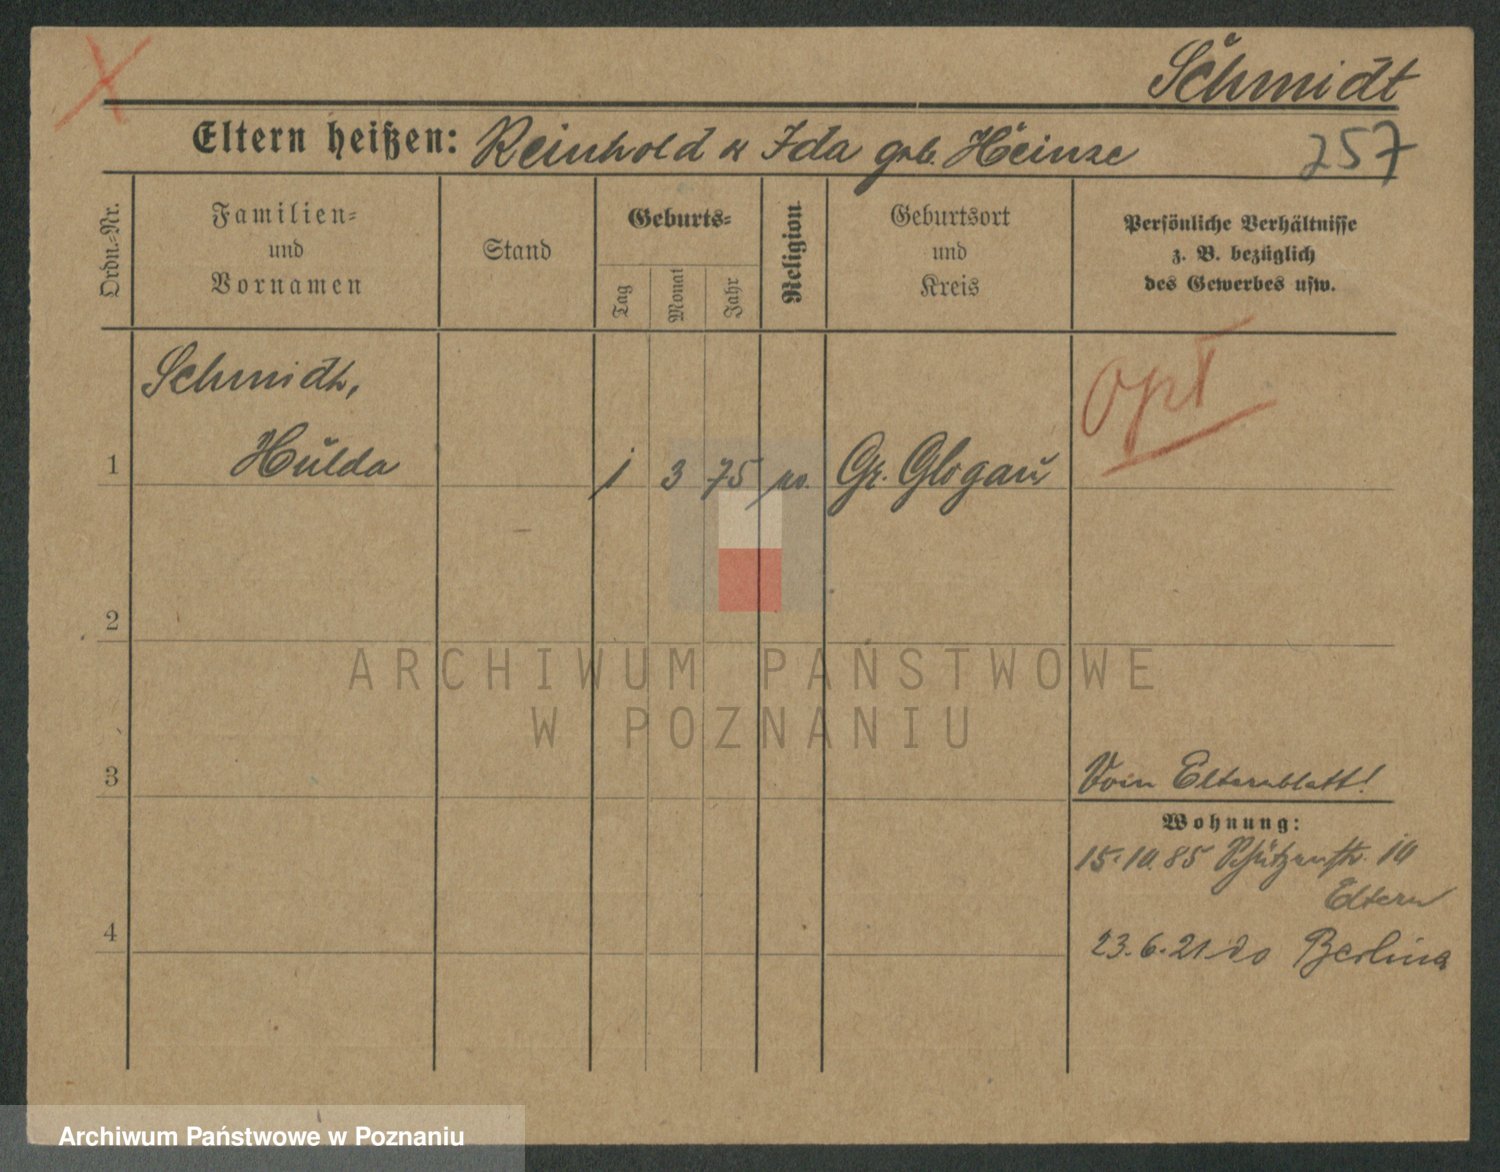 Schmidt
Eltern heißen: Reinhold u Ida geb. Heinze
257
Ordn.-Nr.
Familien-
und
Vornamen
Stand
Geburts-
Tag
Monat
Jahr
Religion
Geburtsort
und
Kreis
Persönliche Verhältnisse
z. B. bezüglich
des Gewerbes usw.
Schmidt,
opt
1 Hulda 1 3 75 Gr. Glogau
2
ARCHIWUM PAŃSTWOWE
W POZNANIU
3
Vom Elternblatt!
Wohnung:
15.10.85 Schützenstr. 10
Eltern
4
23.6.21 do Berlina
Archiwum Państwowe w Poznaniu